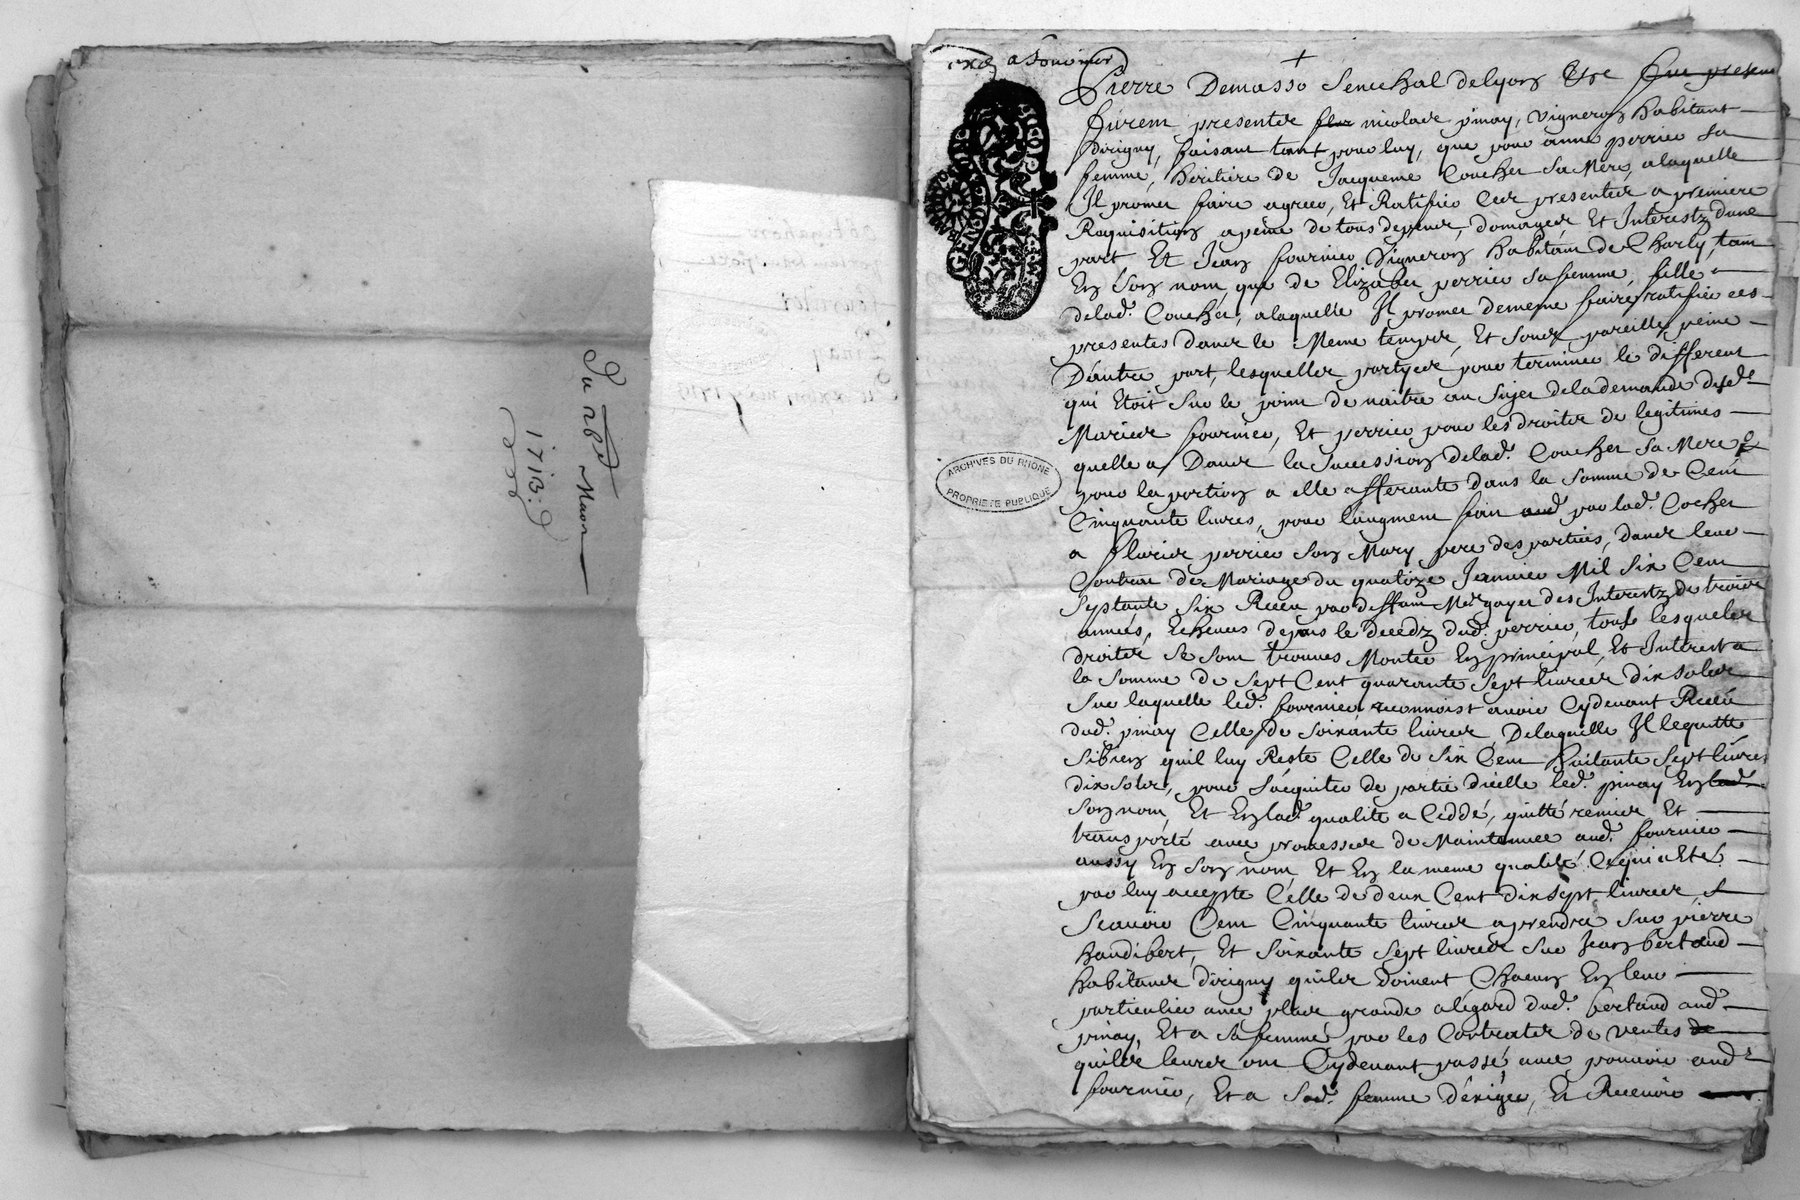 Du 26e Mars
1713
exp a fournier
Pierre Demasso Senechal delyon &c Fut presens
Furent presentes nicolas pinay, vigneron habitant
dirigny, faisant tant pour luy, que pour anne perrier sa
femme, heritiere de Jacqueme Coucher sa Mere, alaquelle
Il promet faire agreer, et Ratifier Ces presentes a premiere
Requisition apeine de tous depens, domages, Et Interestz dune
part Et Jean fournier Vigneron habitant de Charly, tant
En son nom que de Elizabet perrier sa femme, fille
delad. Coucher, alaquelle Il promet dememe faire ratifier ces
presentes dans le Meme temps, Et sous pareille peine
Dautre part, lesquelles partyes pour terminer le different
qui Etoit sur le point de naitre au sujet dela demande desd.
Mariés fournier, Et perrier pour les droits de legitimes
quelle a Dans la succession delad. Coucher sa Mere
pour la portion a elle afferante dans la somme de Cent
Cinquante livres, pour laugment fait par lad. Cocher
a floris perrier son Mary pere des parties, dans leur
Contrat de Mariage du quatorze Janvier Mil Six Cent
Septante Six Receu par deffunt Me gayet des Interestz de trois
années, Echeues depuis le decedz dud. perrier, tous lesquels
droits se sont trouves Monter En principal, Et Interest a
la Somme de Sept Cent quarante Sept livres dix solz
Sur laquelle led. fournier reconnoist avoir Cydevant Receu
dud. pinay Celle de soixante livres Delaquelle Il lequitte
Sibien quil luy Reste Celle de Six Cent huitante Sept livres
dix solz, pour sacquiter de partie dicelle led. pinay En
Son nom, Et En lad. qualite a Ceddé, quitté remis Et
transporté avec promesses de Maintenue aud. fournier
aussy En Son nom, Et En la meme qualité Ce qui a Eté
par luy accepte Celle de deux Cent dix Sept livres
Scavoir Cent Cinquante livres aprendre sur pierre
handibert, Et Soixante Sept livres Sur Jean bertaud
habitans dirigny quils doivent Chacun En leur
particulier avec plus grande alegard dud. bertaud aud.
pinay, Et a Sa femme par les Contrats de ventes
quils leurs ont Cydevant passé avec pouvoir aud.
fournier, Et a Sad. femme d'exiger, Et Recevoir
ARCHIVES DU RHONE
PROPRIETE PUBLIQUE